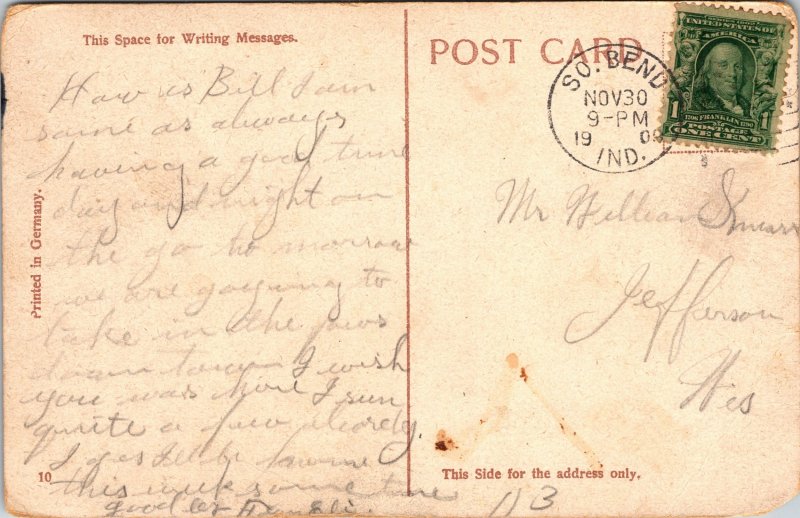 This Space for Writing Messages.
How is Bill I am
same as always
having a good time
day and night on
the go to morrow
we are goying to
take in the
down town I wish
you was here I sun
quite a few already.
I ges I'll be home
this week some time
good by
Printed in Germany.
10
POST CARD
SO. BEND
NOV 30
9-PM
19
IND.
SERIES 1902
UNITED STATES OF
AMERICA
1
FRANKLIN
POSTAGE
ONE CENT
1
Mr William
Jefferson
Wis
This Side for the address only.
113